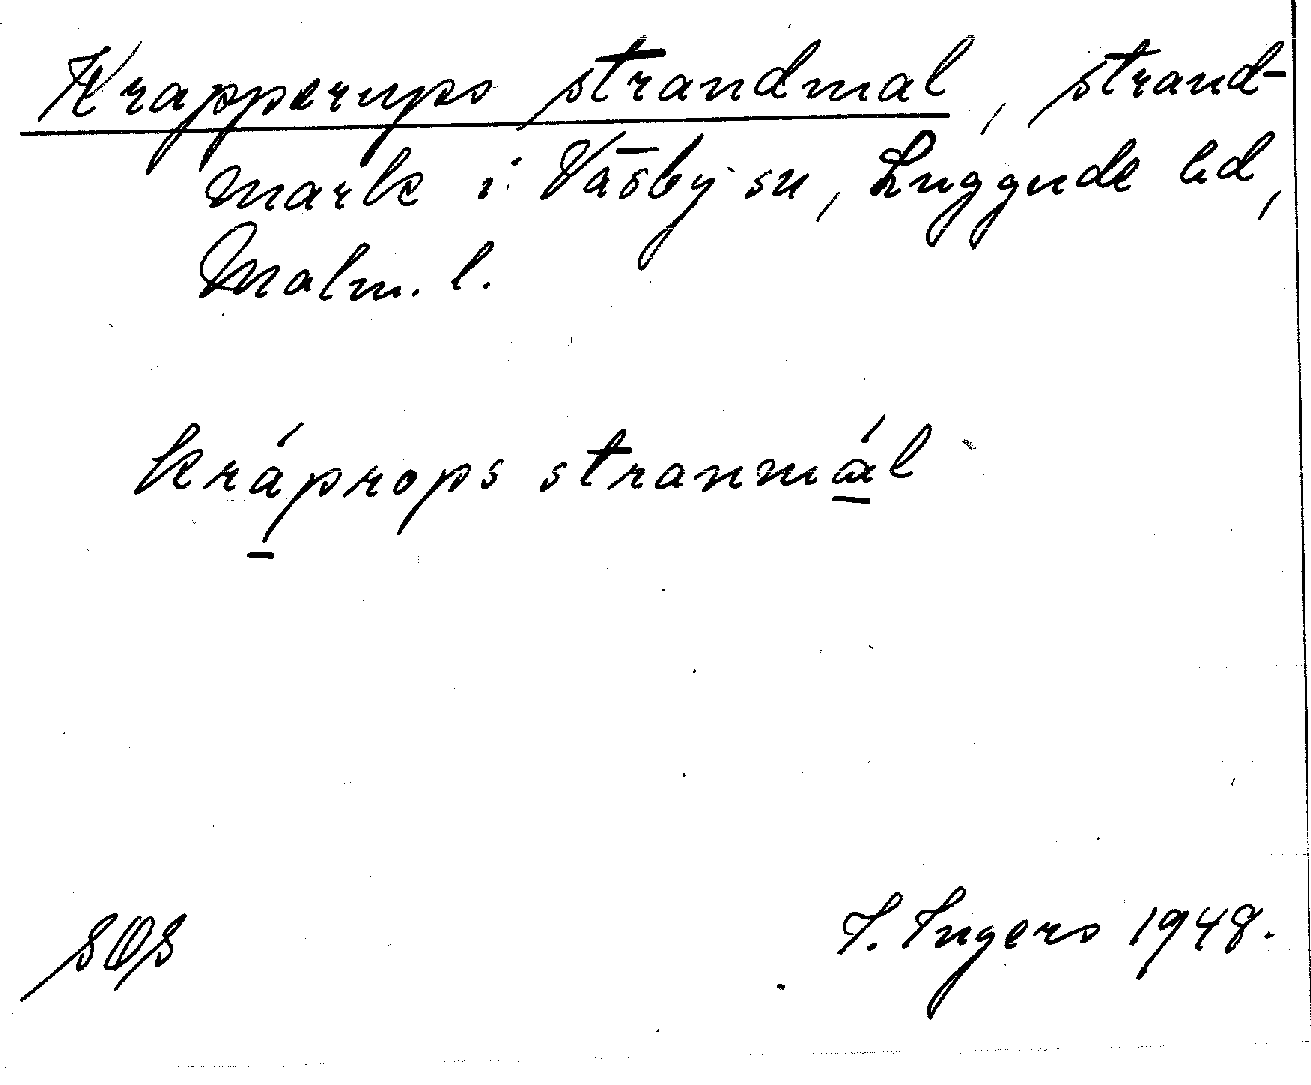 Krapperups strandmal, strand-
mark i Väsby sn, Luggude hd,
Malm. l.
kráprops stranmál
SOS
I. Ingers 1948.